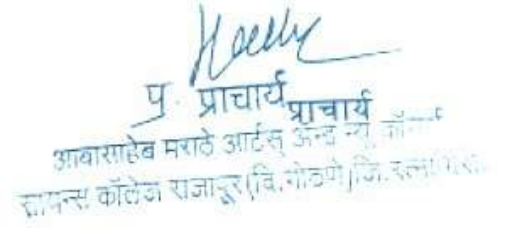 प्र. प्राचार्य प्राचार्य
आबासाहेब मराठे आर्टस् अॅन्ड न्यू कॉमर्स
सायन्स कॉलेज राजापूर (वि.गोठणे) जि. रत्नागिरी.